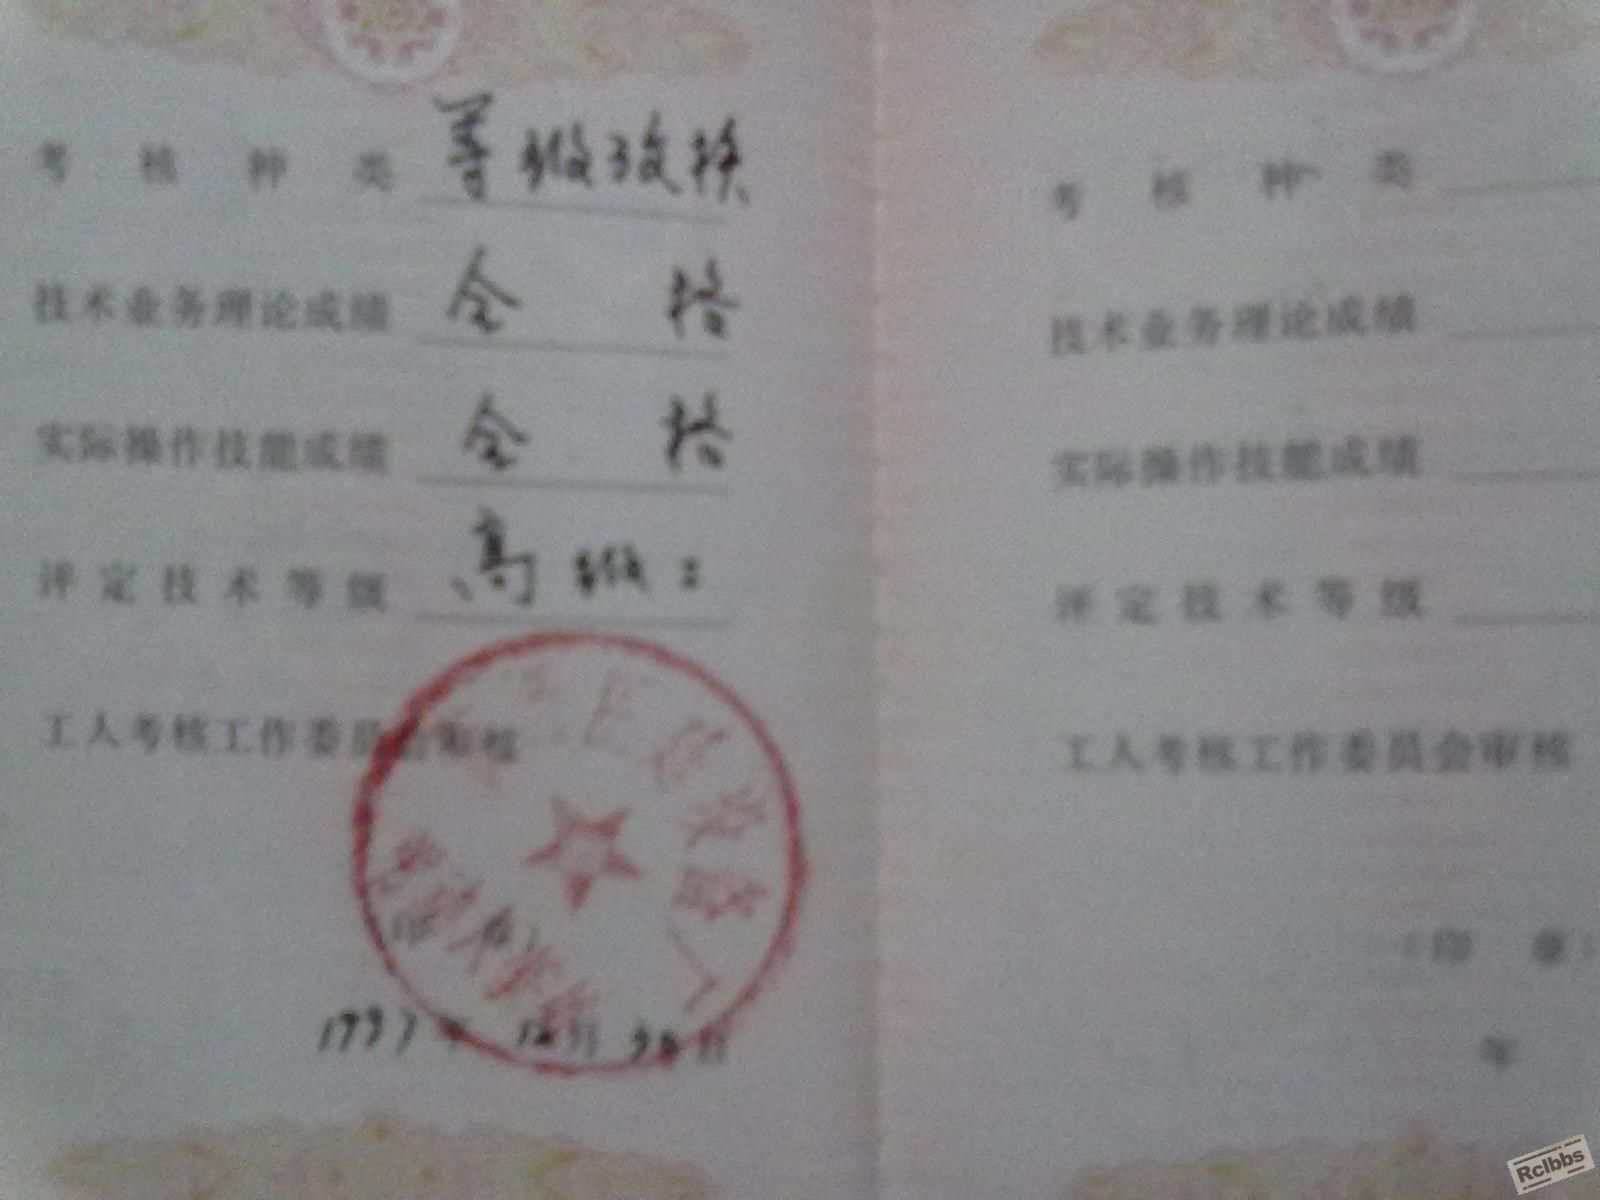 考核种类 等级改换
技术业务理论成绩 合格
实际操作技能成绩 合格
评定技术等级 高级工
工人考核工作委员会审核
1997年12月30日
考核种类
技术业务理论成绩
实际操作技能成绩
评定技术等级
工人考核工作委员会审核
(印 章)
年
Rclbbs